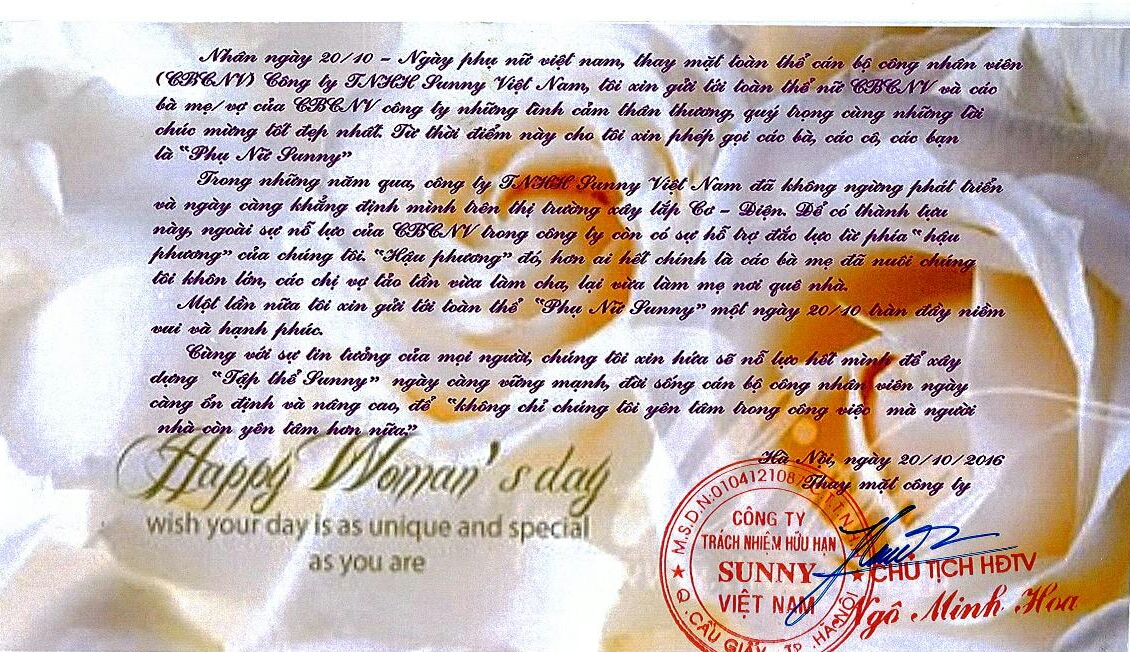 Nhân ngày 20/10 – Ngày phụ nữ việt nam, thay mặt toàn thể cán bộ công nhân viên
(CBCNV) Công ty TNHH Sunny Việt Nam, tôi xin gửi tới toàn thể nữ CBCNV và các
bà mẹ/ vợ của CBCNV công ty những tình cảm thân thương, quý trọng cùng những lời
chúc mừng tốt đẹp nhất. Từ thời điểm này cho tôi xin phép gọi các bà, các cô, các bạn
là “Phụ Nữ Sunny”
Trong những năm qua, công ty TNHH Sunny Việt Nam đã không ngừng phát triển
và ngày càng khẳng định mình trên thị trường xây lắp Cơ – Điện. Để có thành tựu
này, ngoài sự nỗ lực của CBCNV trong công ty còn có sự hỗ trợ đắc lực từ phía “hậu
phương” của chúng tôi. “Hậu phương” đó, hơn ai hết chính là các bà mẹ đã nuôi chúng
tôi khôn lớn, các chị vợ tảo tần vừa làm cha, lại vừa làm mẹ nơi quê nhà.
Một lần nữa tôi xin gửi tới toàn thể “Phụ Nữ Sunny” một ngày 20/10 tràn đầy niềm
vui và hạnh phúc.
Cùng với sự tin tưởng của mọi người, chúng tôi xin hứa sẽ nỗ lực hết mình để xây
dựng “Tập thể Sunny” ngày càng vững mạnh, đời sống cán bộ công nhân viên ngày
càng ổn định và nâng cao, để “không chỉ chúng tôi yên tâm trong công việc mà người
nhà còn yên tâm hơn nữa.”
Happy Woman's day
wish your day is as unique and special
as you are
Hà Nội, ngày 20/10/2016
Thay mặt công ty
M.S.D.N:010412108
CÔNG TY
TRÁCH NHIỆM HỮU HẠN
SUNNY
VIỆT NAM
Q. CẦU GIẤY - TP. HÀ NỘI
CHỦ TỊCH HĐTV
Ngô Minh Hoa